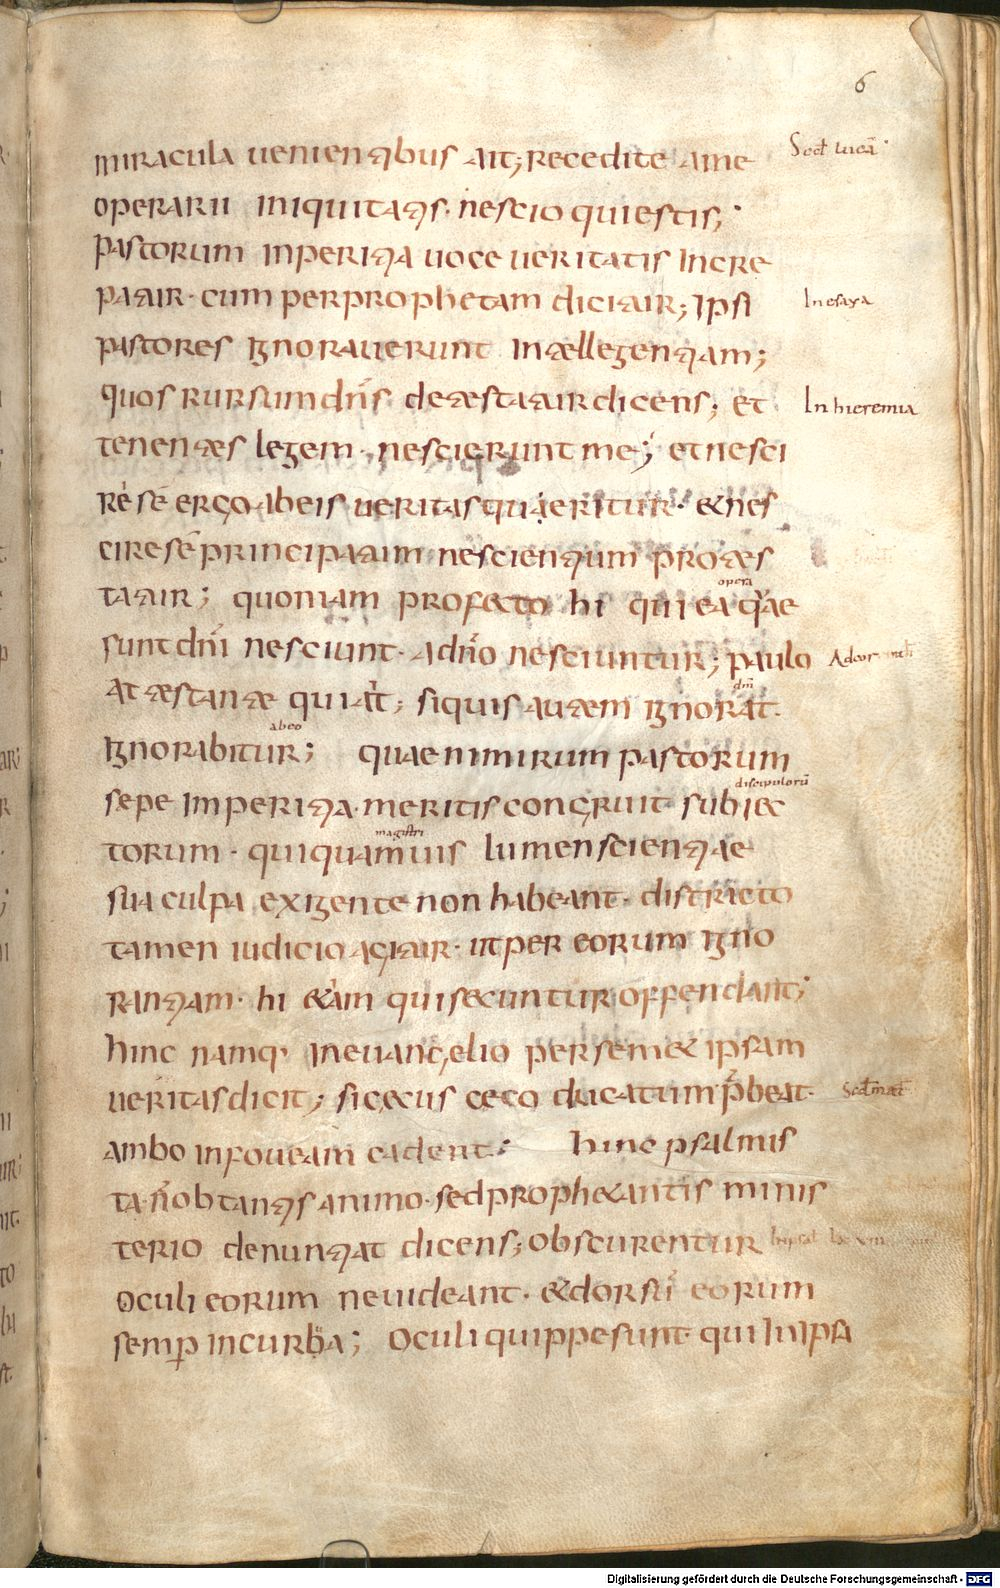 6
miracula uenientibus ait; recedite a me
Scd lucā
operarii iniquitatis · nescio qui estis;
pastorum inperitia uoce ueritatis incre
patatur · cum per prophetam dicitatur; ipsi
In esaya
pastores ignorauerunt intellegentiam;
quos rursum dñs detestatatur dicens; et
In hieremia
tenentes legem · nescierunt me; et nesci
re sē ergo ab eis ueritas quaeritur · & nes
cire sē principatum nescientium protes
tatur; quoniam profecto hi qui ea quae
opera
sunt dñi nesciunt · a dño nesciuntur; paulo
attestante qui ait; si quis autem ignorat
dm̄
ignorabitur; quae nimirum pastorum
abeo
sepe imperitia · meritis congruit subiec
discipulorū
torum · qui quamuis lumen scientiae
magistri
sua culpa exigente non habeant · districto
tamen iudicio agitur · ut per eorum igno
rantiam · hi &iam qui secuntur offendant;
hinc namq; in euangelio per sem& ipsam
ueritas dicit; si cecus ceco ducatum p̄beat ·
Scd mat
ambo in foueam cadent; hinc psalmis
ta · n̄ obtantis animo · sed proph&antis minis
terio denuntiat dicens; obscurentur
oculi eorum ne uideant · & dorsū eorum
semp incurba; Oculi quippe sunt · qui in ipsa
Digitalisierung gefördert durch die Deutsche Forschungsgemeinschaft - DFG